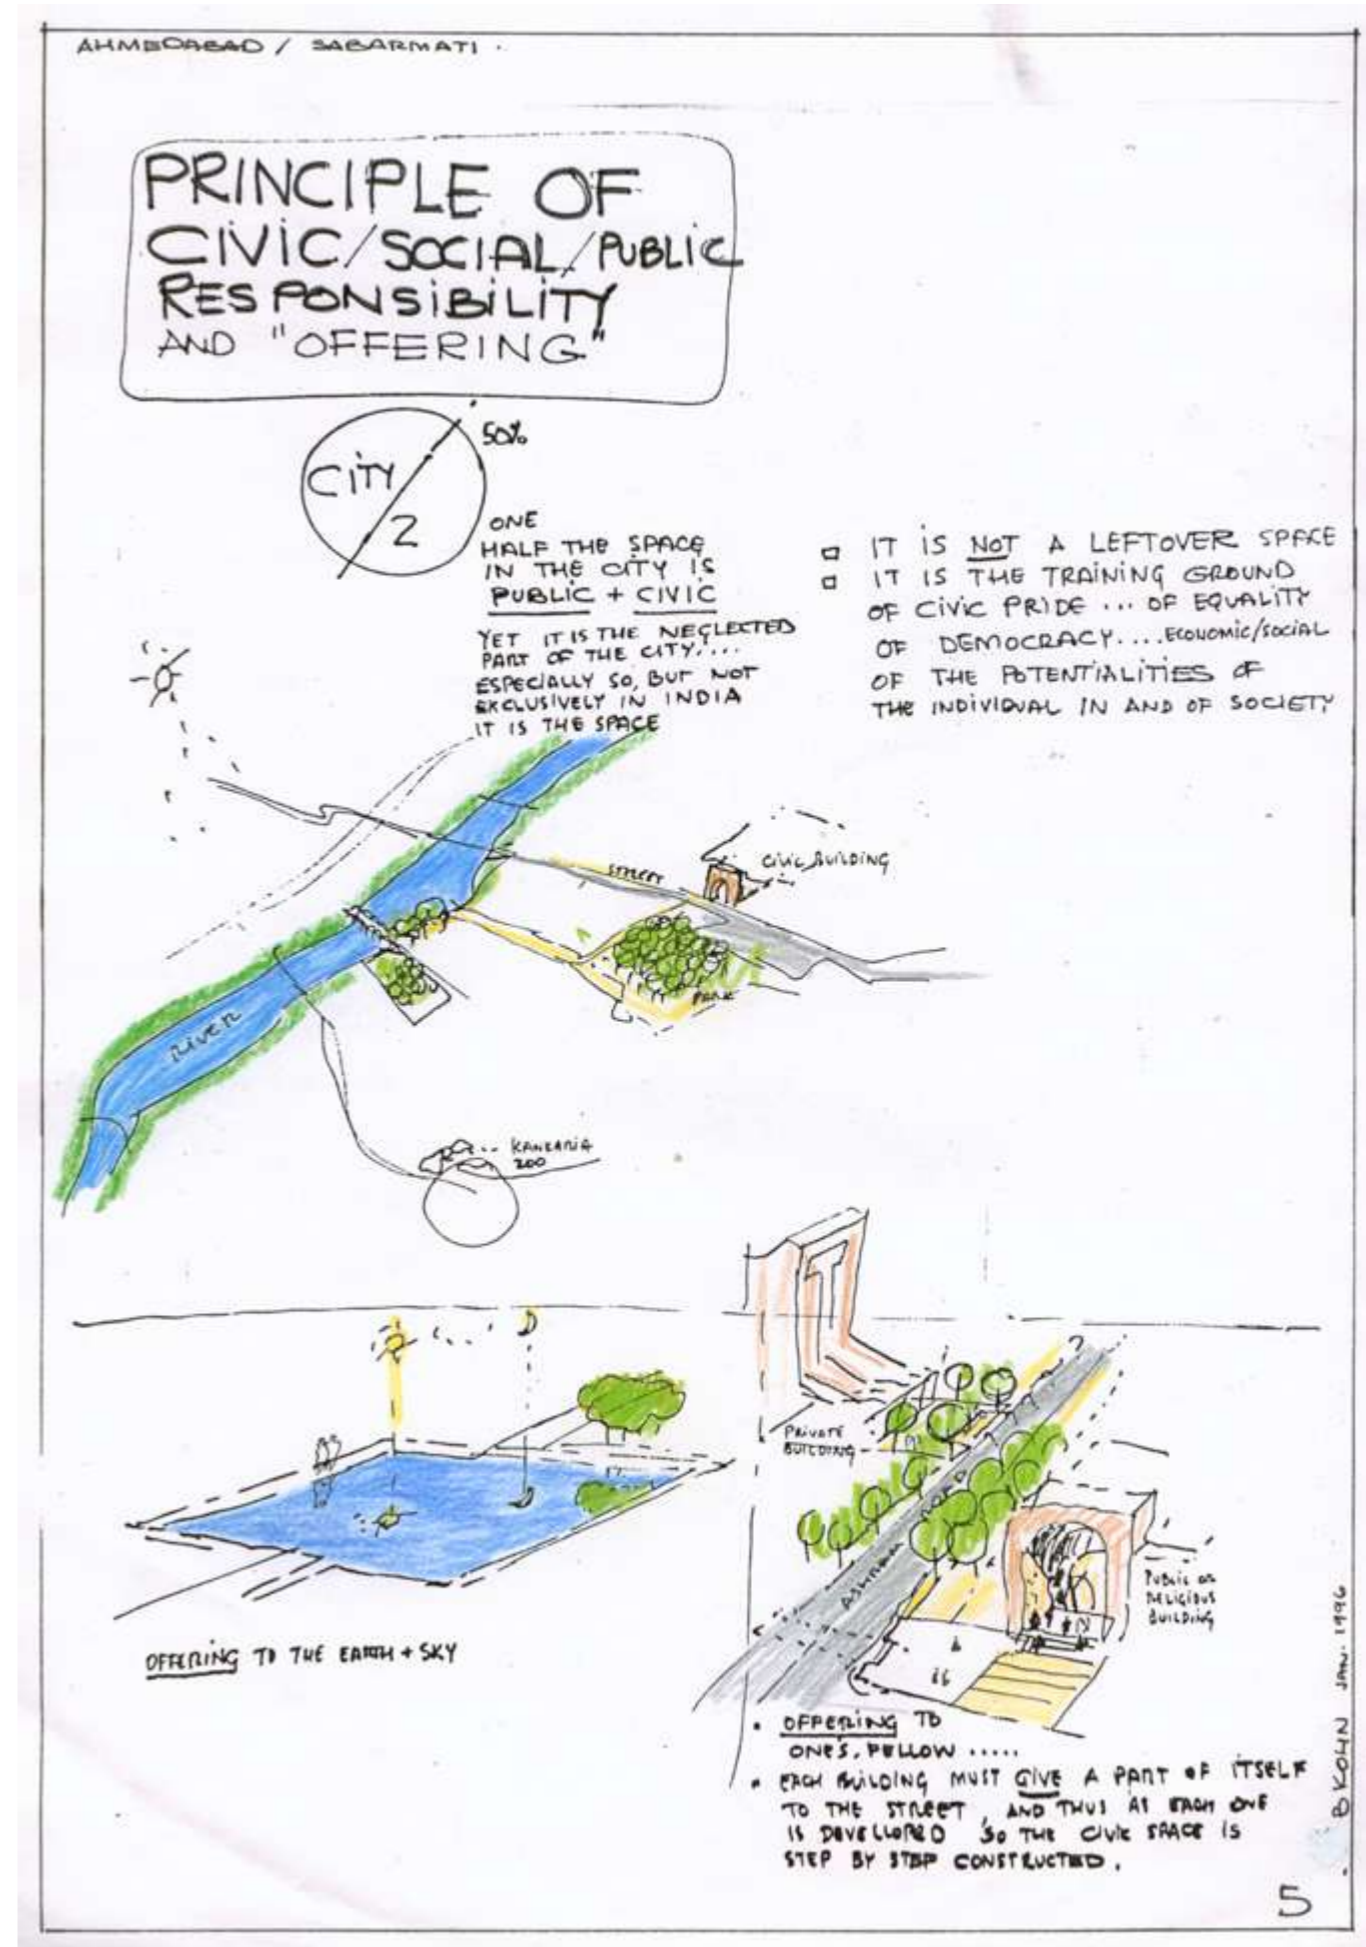 AHMEDABAD / SABARMATI.
PRINCIPLE OF
CIVIC/SOCIAL/PUBLIC
RESPONSIBILITY
AND "OFFERING"
CITY
2
50%
ONE
HALF THE SPACE
IN THE CITY IS
PUBLIC + CIVIC
YET IT IS THE NEGLECTED
PART OF THE CITY.....
ESPECIALLY SO, BUT NOT
EXCLUSIVELY IN INDIA
IT IS THE SPACE
IT IS NOT A LEFTOVER SPACE
IT IS THE TRAINING GROUND
OF CIVIC PRIDE ... OF EQUALITY
OF DEMOCRACY....ECONOMIC/SOCIAL
OF THE POTENTIALITIES OF
THE INDIVIDUAL IN AND OF SOCIETY
STREET
CIVIC BUILDING
PARK
RIVER
KANKARIA
ZOO
PRIVATE
BUILDING
ASHRAM ROAD
PUBLIC OR
RELIGIOUS
BUILDING
OFFERING TO THE EARTH + SKY
• OFFERING TO
ONE'S, FELLOW .....
• EACH BUILDING MUST GIVE A PART OF ITSELF
TO THE STREET, AND THUS AS EACH ONE
IS DEVELLOPED SO THE CIVIC SPACE IS
STEP BY STEP CONSTRUCTED.
B KOHN JAN. 1996
5